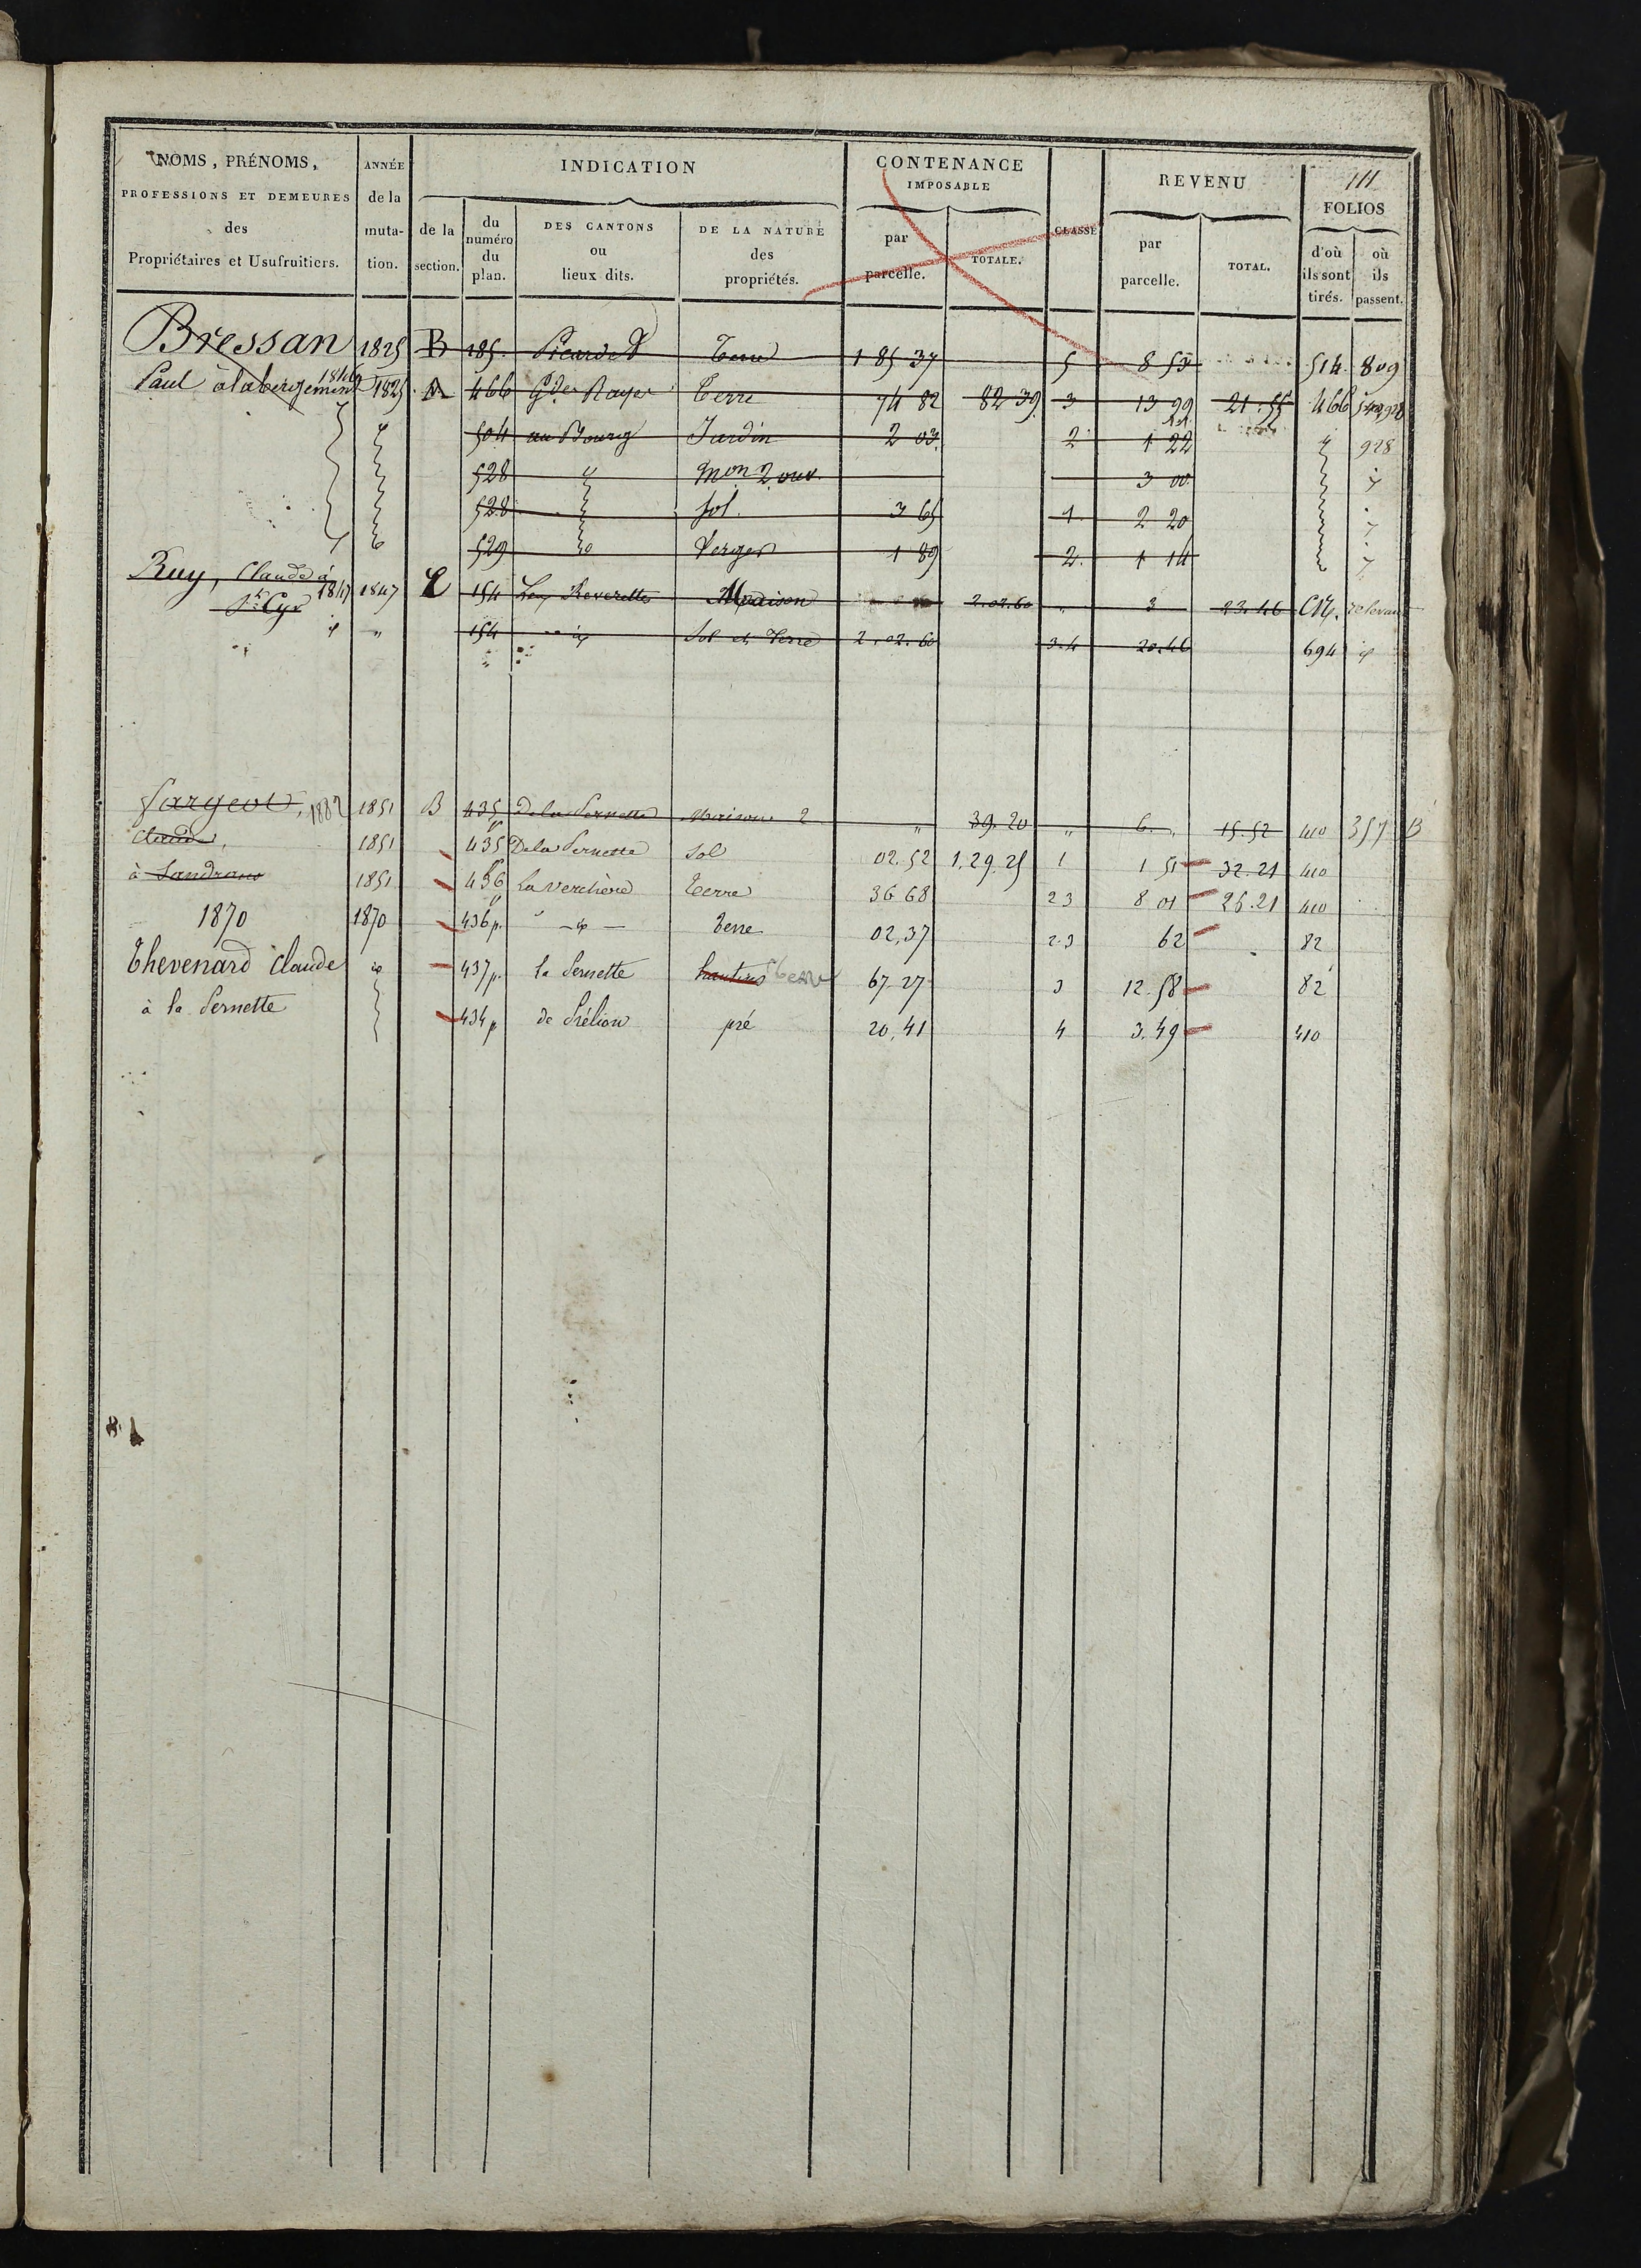 111
NOMS, PRÉNOMS, PROFESSIONS ET DEMEURES des Propriétaires et Usufruitiers.
ANNÉE de la muta-tion.
INDICATION
de la section.
du numéro du plan.
DES CANTONS ou lieux dits.
DE LA NATURE des propriétés.
CONTENANCE IMPOSABLE
par parcelle.
TOTALE.
CLASSE
REVENU
par parcelle.
TOTAL.
FOLIOS
d'où ils sont tirés.
où ils passent.
Bressan 1825 B 185. Terre 1 85 37 5 8 53 514 809
Paul à labergement 1846 1825 A 466 Gdes Rayes Terre 74 82 82 39 3 13 99 21.55 466 928
504 au Bourg Jardin 2 03 2 1 22 928
528 mon 2 ouv. 3 00
528 sol. 3 65 1 2 20
529 Verger 1 89 2 1 14
Ruy, Claude à 1847 1847 154 Maison 2.02.60 " 3 23.46
St Cyr
" 154 Sol et Terre 2.02.60 3.4 20.46 694
1882 1851 B 435 De la Pernette Maison 2 " 39.20 " 6. " 15.52 410 357 B
Claude, 1851 435 De la Pernette Sol 02.52 1.29.25 1 1 51 32.21 410
à Sandrans 1851 436 La verchère Terre 36 68 2 3 8 01 26.21 410
1870 1870 436 p. Terre 02,37 2.3 62 82
Thevenard Claude 437 p. la Pernette hautins terre 67 27 3 12.58 82
à la Pernette 434 p pré 20,41 4 3.49 410